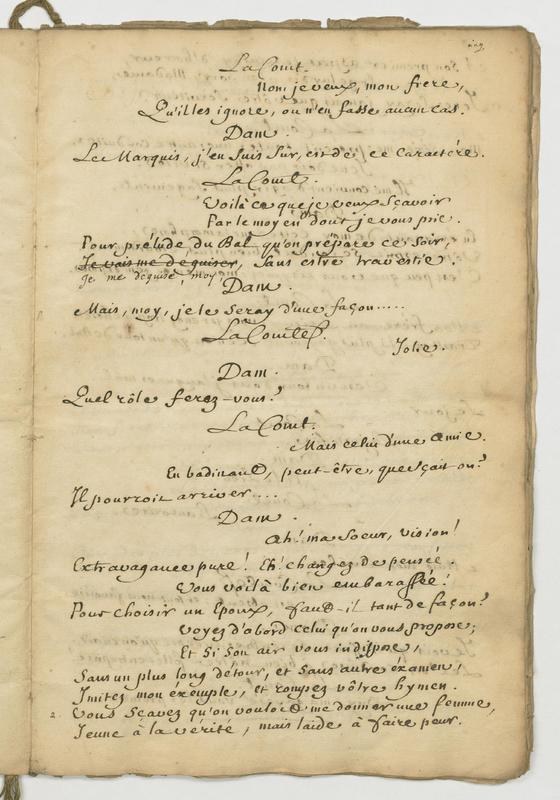 La Comt.
Non, je veux, mon frere,
Qu'il les ignore, ou n'en fasse aucun cas.
Dam.
Le Marquis, j'en suis sûr, est de ce caractére.
La Comt.
Voilà ce que je veux sçavoir
Par le moyen dont je vous prie.
Pour prélude du Bal qu'on prépare ce soir,
Je vais me déguiser, sans estre travestie.
je me déguise, moy,
Dam.
Mais, moy, je le seray d'une façon.....
La Comtes.
Jolie.
Dam.
Quel rôle ferez-vous?
La Comt.
Mais celui d'une Amie.
En badinant, peut-être, que sçait-on?
Il pourroit arriver....
Dam.
Ah! ma Soeur, vision!
Extravagance pure! Eh! changez de pensée.
Vous voilà bien embarassée!
Pour choisir un Epoux, faut-il tant de façon?
Voyez d'abord celui qu'on vous propose;
Et si son air vous indispose,
Sans un plus long détour, et sans autre éxamen,
Imitez mon exemple, et rompez vôtre hymen.
Vous sçavez qu'on vouloit me donner une femme,
Jeune à la vérité, mais laide à faire peur.